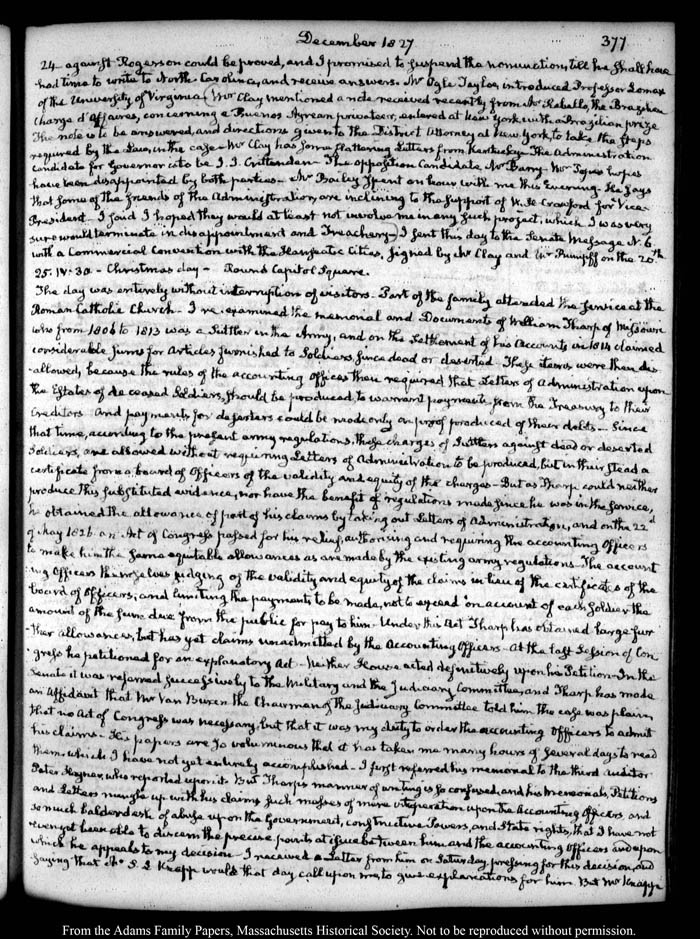 December 1827
377
24 against Rogerson could be proved, and I promised to suspend the nomination, till he shall have
had time to write to North-Carolina, and receive answers. Mr Ogle Tayloe, introduced Professor Lomax
of the University of Virginia. Mr Clay mentioned a note received recently from Mr Rebello the Brazilian
Charge d'Affaires, concerning a Buenos Ayrean privateer, entered at New York with a Brazilian prize
The note is to be answered, and directions given to the District Attorney at New York to take the steps
required by the Laws in the case. Mr Clay has some flattering Letters from Kentucky. The Administration
candidate for Governor is to be J. J. Crittenden. The opposition Candidate Mr Barry. Mr hopes
have been disappointed by both parties. Mr Bailey spent an hour with me this Evening. He says
that some of the friends of the Administration, are inclining to the support of W. H. Crawford for Vice
President. I said I hoped they would at least not involve me in any such project, which I was very
sure would terminate in disappointment and Treachery. I sent this day to the Senate Message N. 6.
with a Commercial Convention with the Hanseatic Cities, signed by Mr Clay and Mr Rumpff on the 20th
25. IV. 30. Christmas day. Round Capitol Square.
The day was entirely without interruption of visitors. Part of the family attended the service at the
Roman Catholic Church. I re-examined the memorial and Documents of William Tharp of Missouri
who from 1806 to 1813 was a Suttler in the Army, and on the settlement of his Accounts in 1814 claimed
considerable sums for Articles furnished to Soldiers, since dead or deserted. These items were then dis-
-allowed, because the rules of the accounting Offices then required that Letters of Administration upon
the Estates of deceased Soldiers, should be produced, to warrant payments from the Treasury to their
Creditors. And payments for deserters could be made only on proof produced of their debts. Since
that time, according to the present army regulations, these charges of Suttlers against dead or deserted
Soldiers, are allowed without requiring Letters of Administration to be produced, but in their stead a
certificate from a board of Officers of the validity and equity of the charges. But as Tharp could neither
produce this substituted evidence, nor have the benefit of regulations made since he was in the service,
he obtained the allowance of part of his claims by taking out Letters of Administration, and on the 22d
of May 1826 an Act of Congress passed for his relief, authorising and requiring the accounting Officers
to make him the same equitable allowances as are made by the existing army regulations. The account
-ing Officers themselves judging of the validity and equity of the claims in lieu of the certificates of the
board of Officers, and limiting the payments to be made, not to exceed on account of each Soldier the
amount of the sum due from the public for pay to him. Under this Act Tharp has obtained large fur
-ther allowances, but has yet claims unadmitted by the Accounting Officers. At the last Session of Con
-gress he petitioned for an explanatory Act. Neither House acted definitively upon his Petition. In the
Senate it was referred successively to the Military and the Judiciary Committee, and Tharp has made
an Affidavit that Mr Van Buren the Chairman of the Judiciary Committee told him the case was plain,
that no Act of Congress was necessary but that it was my duty to order the accounting Officers to admit
his claims. His papers are so voluminous that it has taken me many hours of several days to read
them, which I have not yet entirely accomplished. I first referred his memorial to the third Auditor
Peter Hagner, who reported upon it. But Tharp's manner of writing is so confused, and his Memorials, Petitions
and Letters mingle up with his claims such masses of mere vituperation upon the Accounting Officers, and
so much balderdash of abuse upon the Government, constructive Powers, and State rights, that I have not
even yet been able to discern the precise points at issue between him and the accounting Officers and upon
which he appeals to my decision. I received a Letter from him on Saturday, pressing for this decision, and
saying that Mr S. L. Knapp would that day call upon me, to give explanations for him. But Mr Knapp
From the Adams Family Papers, Massachusetts Historical Society. Not to be reproduced without permission.